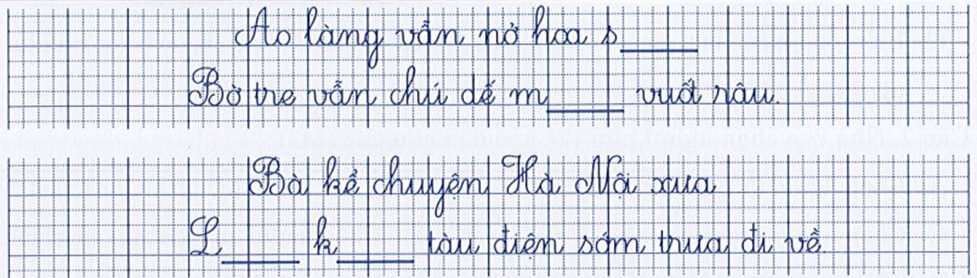 Ao làng vẫn nở hoa s____
Bờ tre vẫn chú dế m____ vuốt râu.
Bà kể chuyện Hà Nội xưa
L____ k____ tàu điện sớm trưa đi về.